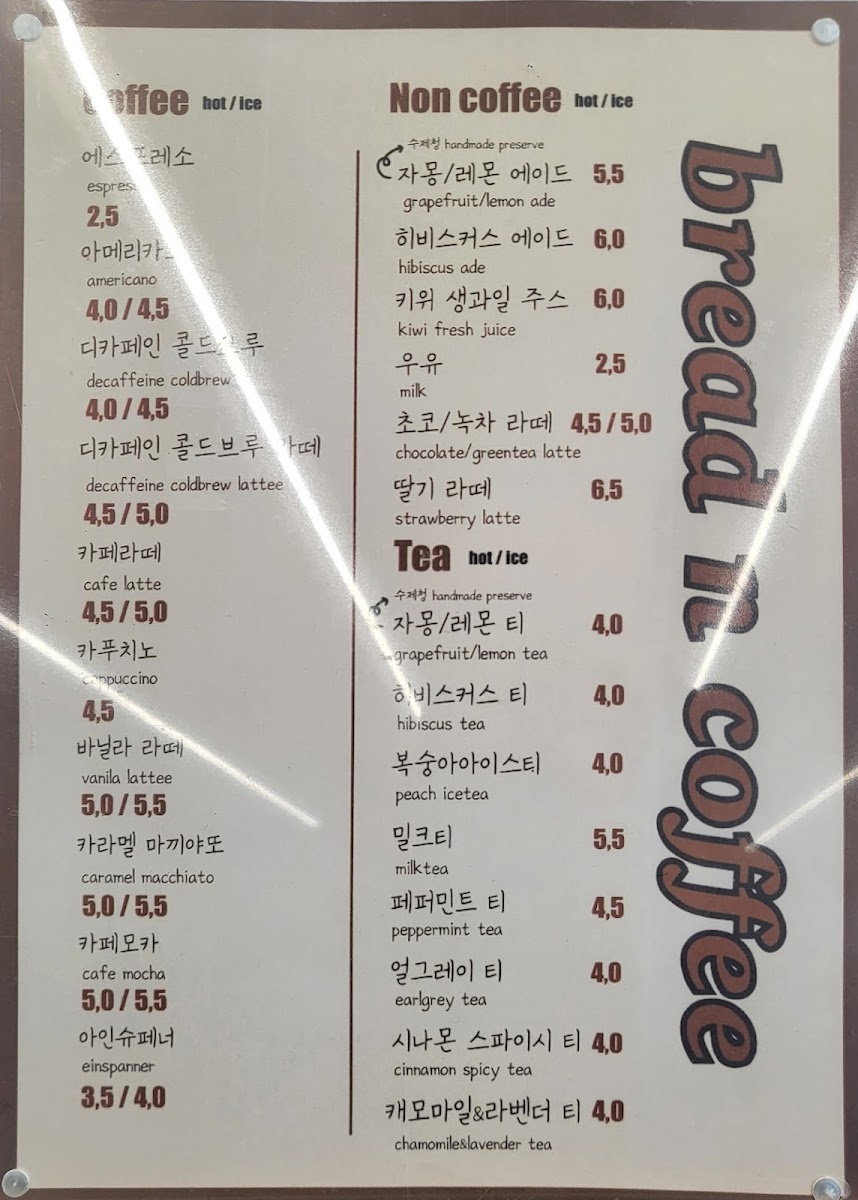 Coffee hot / ice
에스프레소
espresso
2,5
아메리카노
americano
4,0 / 4,5
디카페인 콜드브루
decaffeine coldbrew
4,0 / 4,5
디카페인 콜드브루 라떼
decaffeine coldbrew lattee
4,5 / 5,0
카페라떼
cafe latte
4,5 / 5,0
카푸치노
cappuccino
4,5
바닐라 라떼
vanila lattee
5,0 / 5,5
카라멜 마끼야또
caramel macchiato
5,0 / 5,5
카페모카
cafe mocha
5,0 / 5,5
아인슈페너
einspanner
3,5 / 4,0
Non coffee hot / ice
수제청 handmade preserve
자몽/레몬 에이드 5,5
grapefruit/lemon ade
히비스커스 에이드 6,0
hibiscus ade
키위 생과일 주스 6,0
kiwi fresh juice
우유 2,5
milk
초코/녹차 라떼 4,5 / 5,0
chocolate/greentea latte
딸기 라떼 6,5
strawberry latte
Tea hot / ice
수제청 handmade preserve
자몽/레몬 티 4,0
grapefruit/lemon tea
히비스커스 티 4,0
hibiscus tea
복숭아아이스티 4,0
peach icetea
밀크티 5,5
milktea
페퍼민트 티 4,5
peppermint tea
얼그레이 티 4,0
earlgrey tea
시나몬 스파이시 티 4,0
cinnamon spicy tea
캐모마일&라벤더 티 4,0
chamomile&lavender tea
bread n coffee